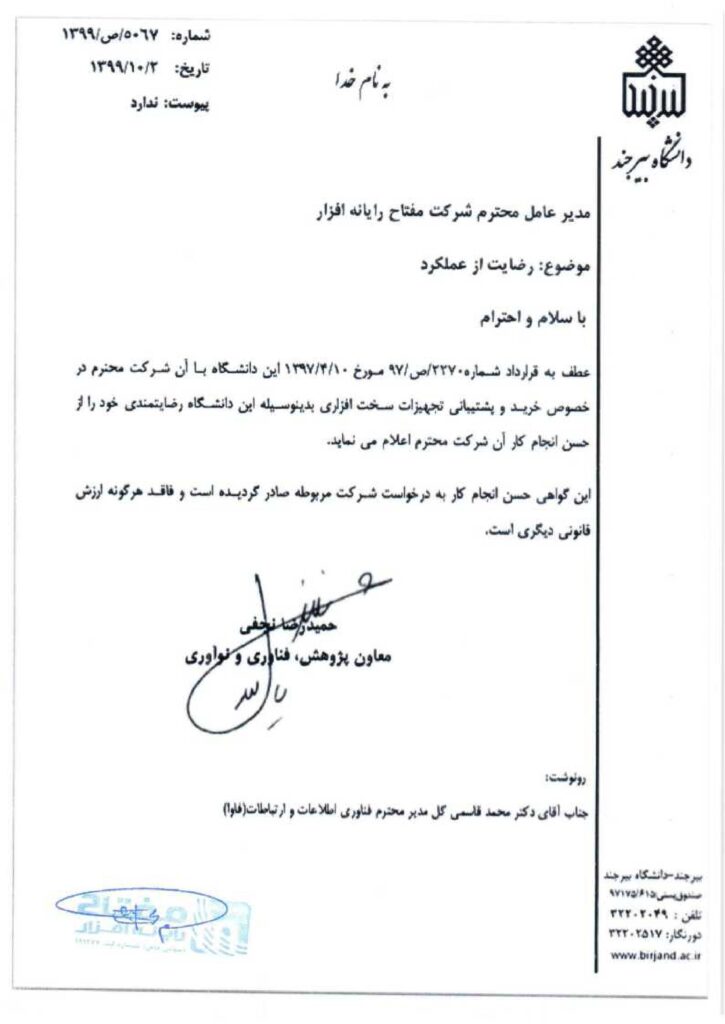 شماره: ۵۰۶۷/ص/۱۳۹۹
تاریخ: ۱۳۹۹/۱۰/۲
پیوست: ندارد
به نام خدا
بیرجند
دانشگاه بیرجند
مدیر عامل محترم شرکت مفتاح رایانه افزار
موضوع: رضایت از عملکرد
با سلام و احترام
عطف به قرارداد شماره۲۲۷۰/ص/۹۷ مورخ ۱۳۹۷/۴/۱۰ این دانشگاه با آن شرکت محترم در
خصوص خرید و پشتیبانی تجهیزات سخت افزاری بدینوسیله این دانشگاه رضایتمندی خود را از
حسن انجام کار آن شرکت محترم اعلام می نماید.
این گواهی حسن انجام کار به درخواست شرکت مربوطه صادر گردیده است و فاقد هرگونه ارزش
قانونی دیگری است.
حمیدرضا نجفی
معاون پژوهش، فناوری و نوآوری
رونوشت:
جناب آقای دکتر محمد قاسمی گل مدیر محترم فناوری اطلاعات و ارتباطات(فاوا)
مفتاح
رایانه افزار
بیرجند-دانشگاه بیرجند
صندوق پستی:۹۷۱۷۵/۶۱۵
تلفن : ۳۲۲۰۲۰۴۹
دورنگار: ۳۲۲۰۲۵۱۷
www.birjand.ac.ir